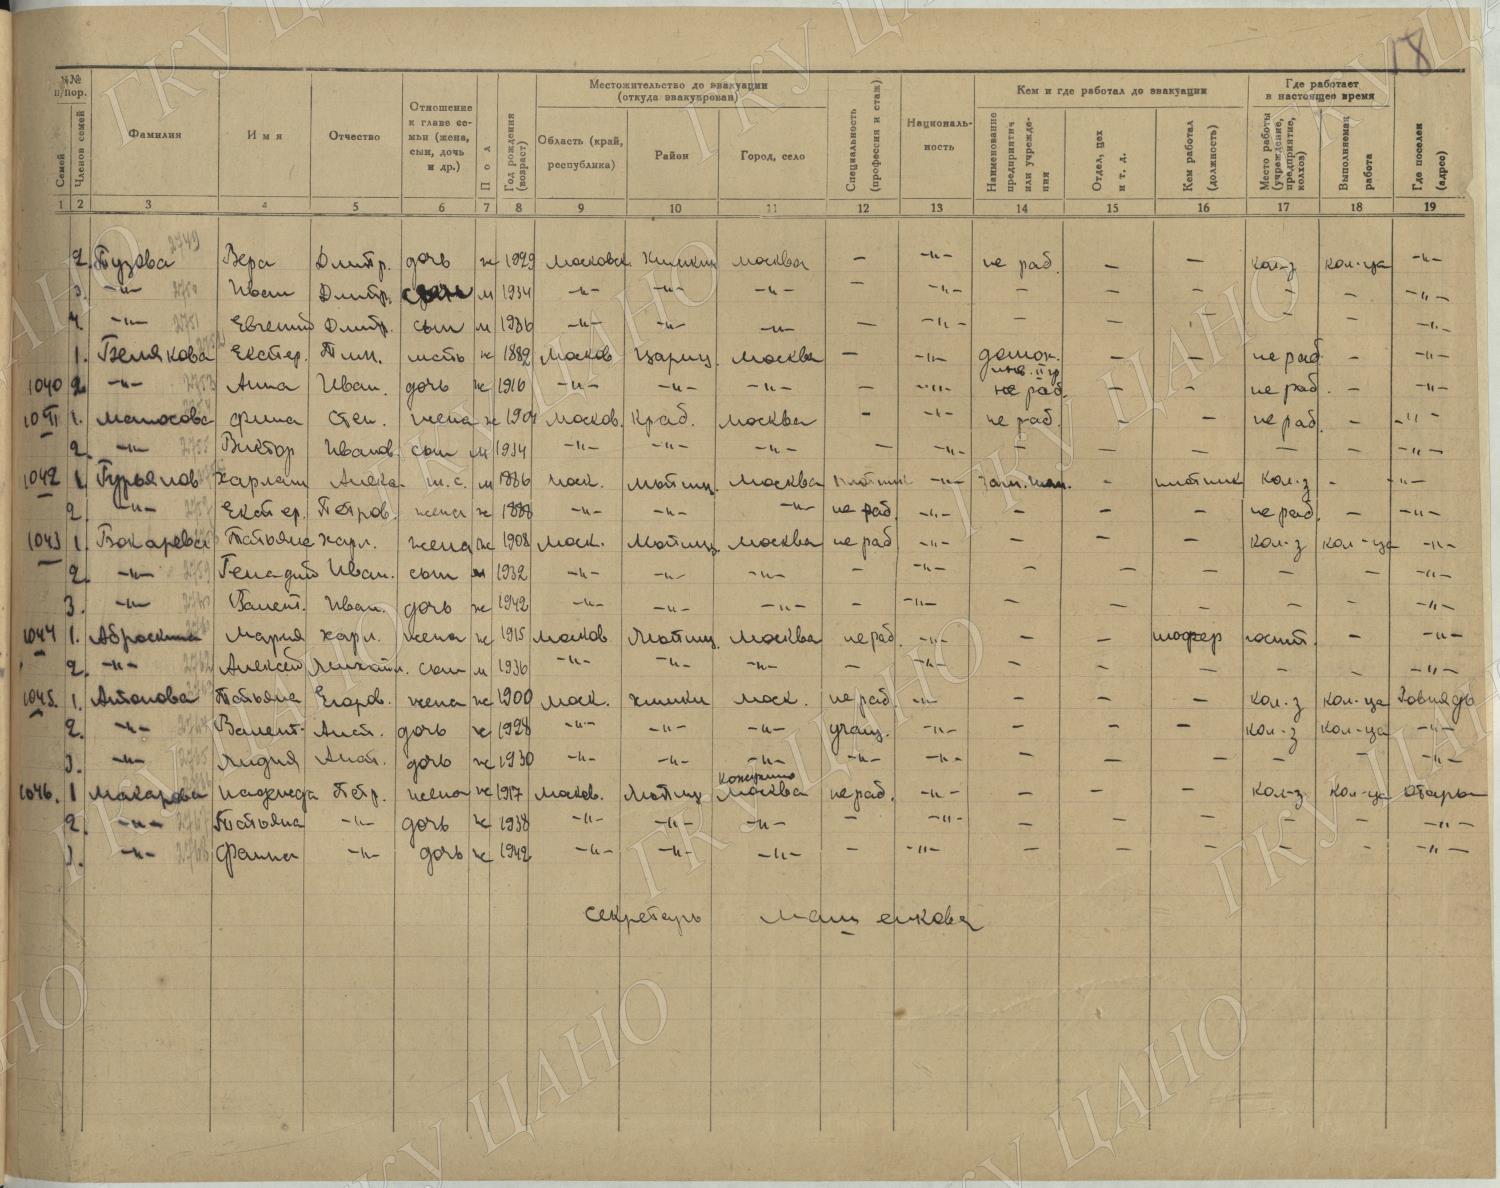 18
№№ п/пор.
Семей
Членов семей
Фамилия
Имя
Отчество
Отношение к главе семьи (жена, сын, дочь и др.)
Пол
Год рождения (возраст)
Местожительство до эвакуации (откуда эвакуирован)
Область (край, республика)
Район
Город, село
Специальность (профессия и стаж)
Националь-ность
Кем и где работал до эвакуации
Наименование предприятия или учреждения
Отдел, цех и т. д.
Кем работал (должность)
Где работает в настоящее время
Место работы (учреждение, предприятие, колхоз)
Выполняемая работа
Где поселен (адрес)
1 2 3 4 5 6 7 8 9 10 11 12 13 14 15 16 17 18 19
2. 2749 Вера Дмитр. дочь ж 1929 Московск. Химки Москва — -"- не раб. — — кол-з кол-ца -"-
3. -"- 2750 Иван Дмитр. сын м 1934 -"- -"- -"- — -"- — — — — — -"-
4. -"- 2751 Евгений Дмитр. сын м 1936 -"- -"- -"- — -"- — — — — — -"-
1. Белякова Екатер. Тим. мать ж 1882 Москов. Москва — -"- домох. — — не раб. — -"-
инв. II гр.
1040 2. -"- 2753 Анна Иван. дочь ж 1916 -"- -"- -"- — -"- не раб. — — не раб. — -"-
1041 1. Матосова Степ. жена ж 1904 Москов. Краб. Москва — -"- не раб. — — не раб. — -"-
2. -"- 2755 Виктор Иванов. сын м 1934 -"- -"- -"- — -"- — — — — — -"-
1042 1. Гурьянов Харлам Алекс. м 1886 Моск. Мытищ. Москва плотник -"- — плотник кол-з - -"-
2. -"- Екатер. Петров. жена ж 1888 -"- -"- -"- не раб. -"- — — — не раб. — -"-
1043 1. Бокарева Татьяна Харл. жена ж 1908 Моск. Мытищ. Москва не раб. -"- — — — кол-з кол-ца -"-
2. -"- 2759 Генадий Иван. сын м 1932 -"- -"- -"- — -"- — — — — — -"-
3. -"- Валент. Иван. дочь ж 1942 -"- -"- -"- — -"- — — — — — -"-
1044 1. Аброскина Мария Харл. жена ж 1915 Москов. Мытищ. Москва не раб. -"- — — шофер — -"-
2. -"- 2762 Алексей Михайл. сын м 1936 -"- -"- -"- — -"- — — — — — -"-
1045. 1. Антонова Татьяна Егоров. жена ж 1900 Моск. Химки Моск. не раб. -"- — — — кол-з кол-ца
2. -"- 2764 Валент. Анат. дочь ж 1928 -"- -"- -"- учащ. -"- — — — кол-з кол-ца -"-
3. -"- 2765 Лидия Анат. дочь ж 1930 -"- -"- -"- -"- -"- — — — — — -"-
1046. 1 Макарова Надежда Петр. жена ж 1917 Москов. Мытищ Москва не раб. -"- — — — кол-з кол-ца
2. -"- 2767 Татьяна -"- дочь ж 1938 -"- -"- -"- — -"- — — — — — -"-
3. -"- 2768 Фаина -"- дочь ж 1942 -"- -"- -"- — -"- — — — — — -"-
секретарь
ГКУ ЦАНО